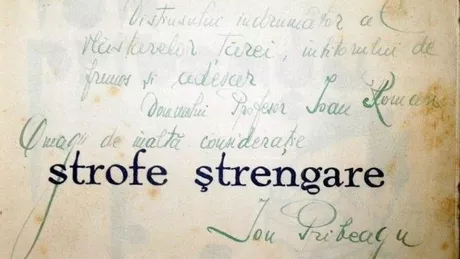 Distinsului îndrumător al
vlăstarelor Țărei, iubitorului de
frumos și
Domnului Profesor Ioan Roman
Omagii de înaltă considerație
strofe ștrengare
Ion Pribeagu